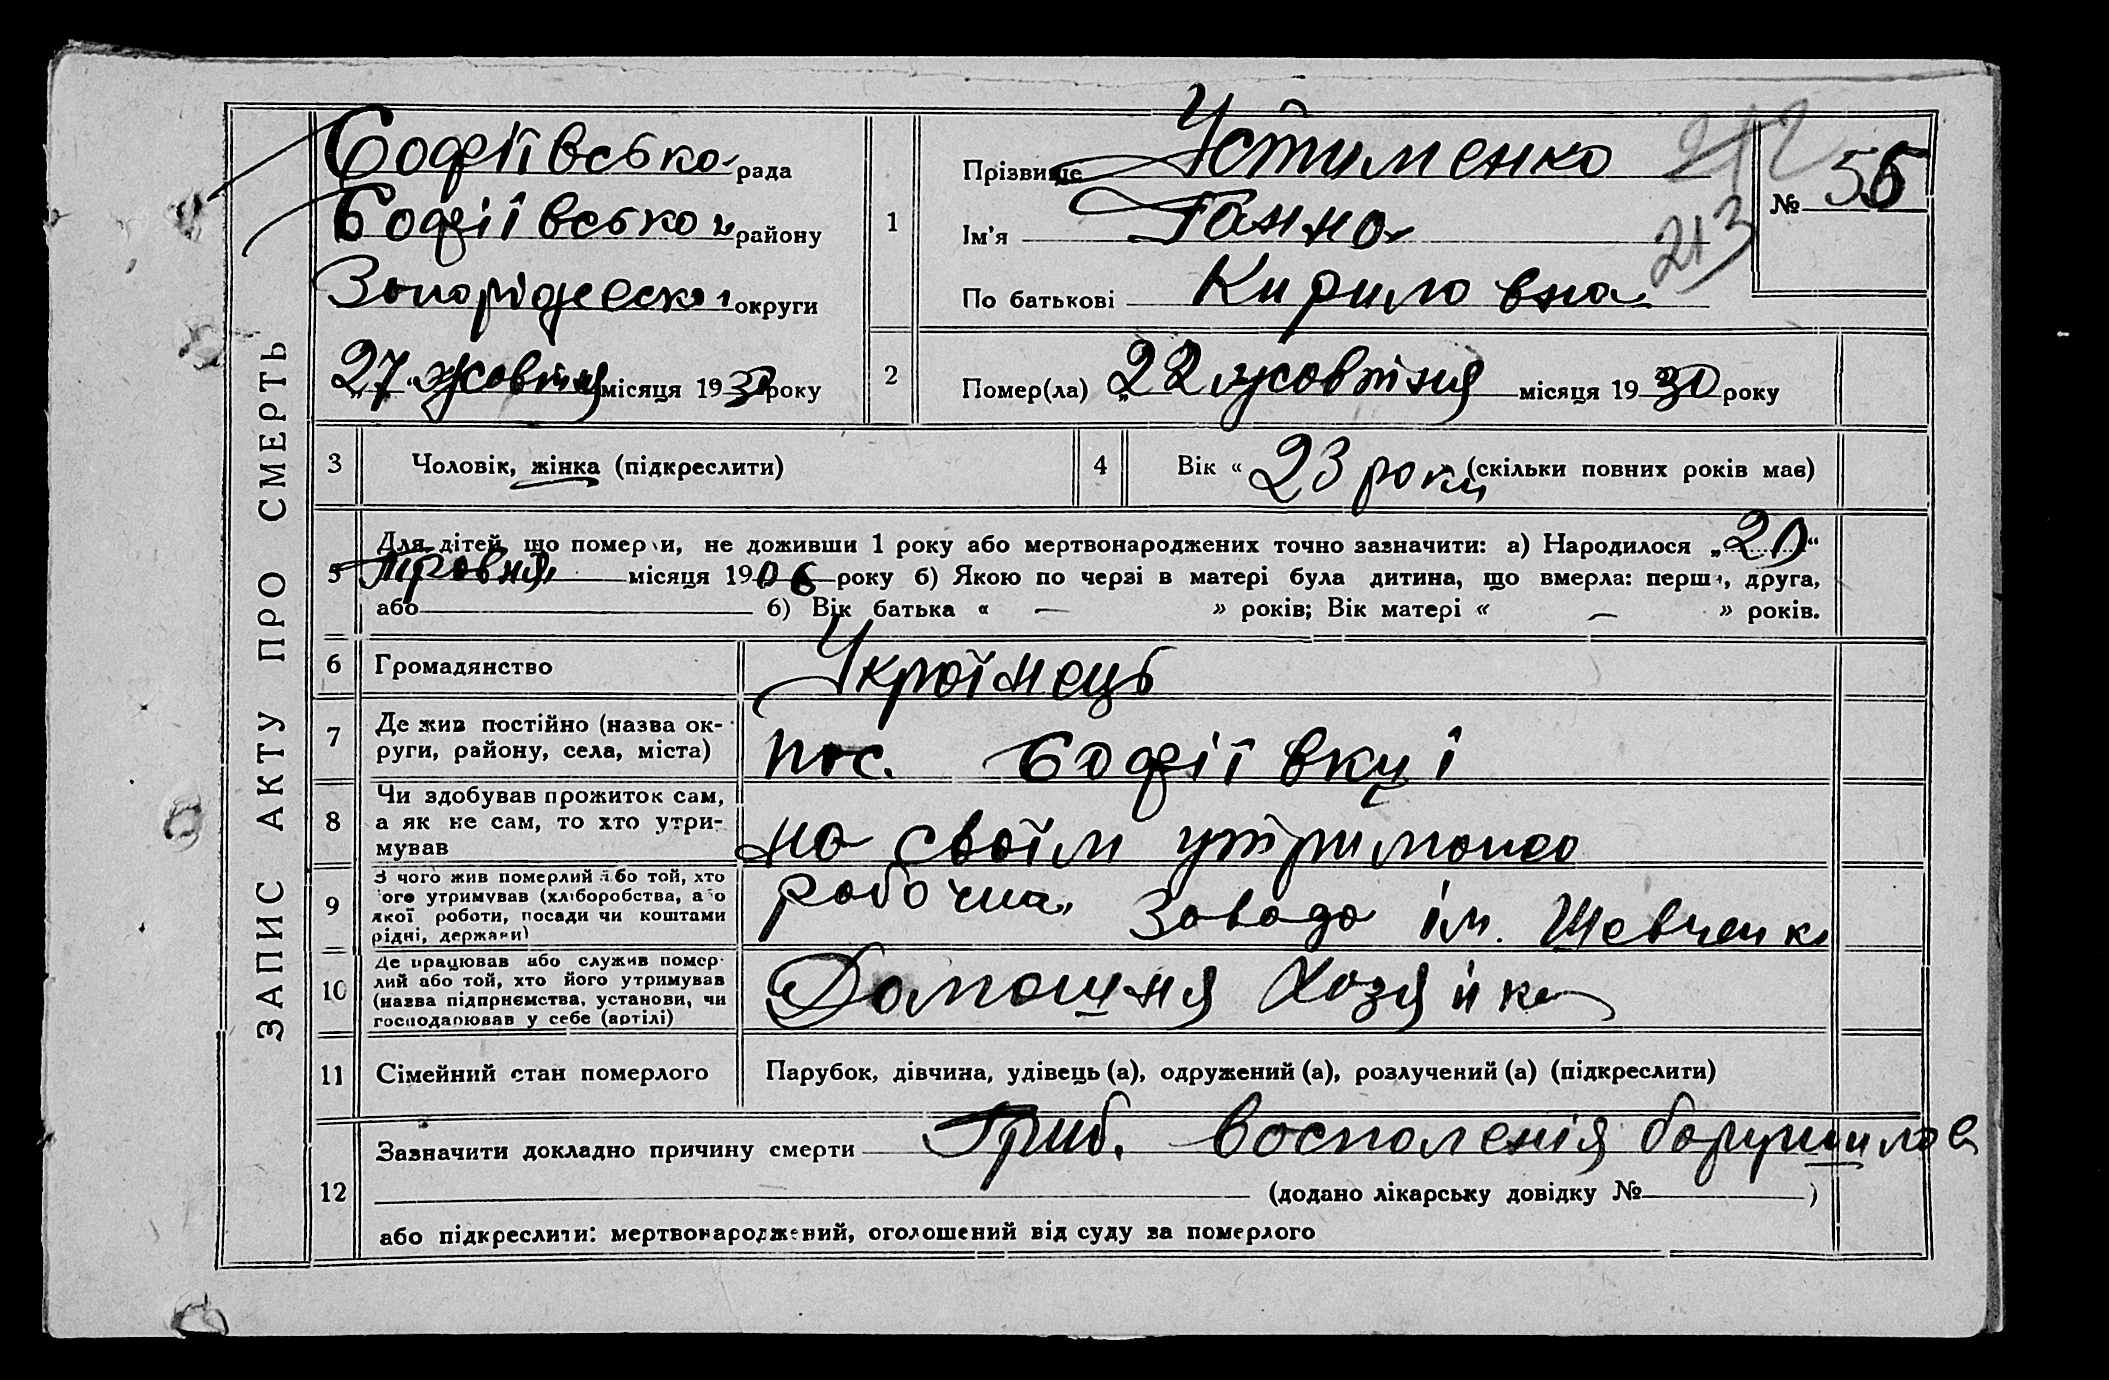 ЗАПИС АКТУ ПРО СМЕРТЬ
Софіївсько рада
Софіївсько району
округи
27 жовтня місяця 1930 року
1
Прізвище Устименко
Ім'я Ганна
По батькові Кириловна
212
213
№ 55
2
Помер(ла) „22 жовтня місяця 1930 року
3
Чоловік, жінка (підкреслити)
4
Вік « 23 роки (скільки повних років має)
5
Для дітей, що померли, не доживши 1 року або мертвонароджених точно зазначити: а) Народилося „20“
травня місяця 1906 року б) Якою по черзі в матері була дитина, що вмерла: перша, друга,
або б) Вік батька « — » років; Вік матері « — » років.
6
Громадянство
Україінець
7
Де жив постійно (назва ок-
руги, району, села, міста)
пос. Софіївкці
8
Чи здобував прожиток сам,
а як не сам, то хто утри-
мував
на своїм
9
З чого жив померлий або той, хто
його утримував (хліборобства, або
якої роботи, посади чи коштами
рідні, держави)
робочиа, Завода ім. Шевченк
10
Де працював або служив помер-
лий або той, хто його утримував
(назва підприємства, установи, чи
господарював у себе (артілі)
Домашня Хозяйка
11
Сімейний стан померлого
Парубок, дівчина, удівець (а), одружений (а), розлучений (а) (підкреслити)
12
Зазначити докладно причину смерти восполенія
(додано лікарську довідку № )
або підкреслити: мертвонароджений, оголошений від суду за померлого